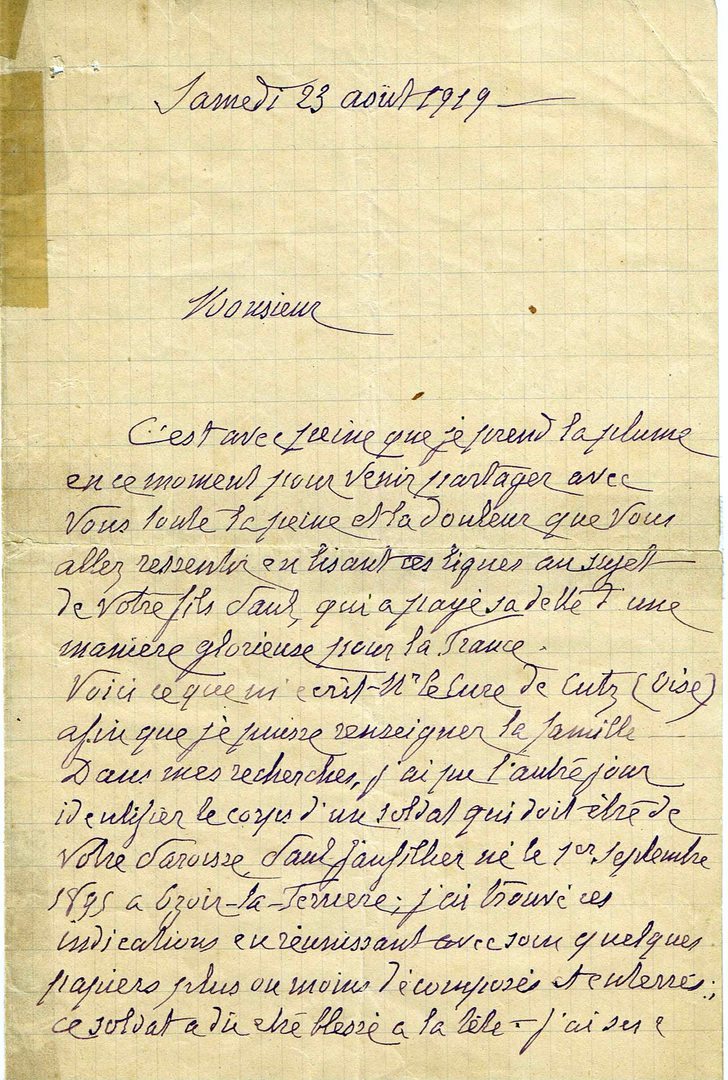 Samedi 23 août 1919
Monsieur
C'est avec peine que je prend la plume
en ce moment pour venir partager avec
vous toute la peine et la douleur que vous
allez ressentir en lisant ces lignes au sujet
de votre fils Paul, qui a payé sa dette d'une
manière glorieuse pour la France.
Voici ce que m'ecrit Mr le Cure de Cuts (Oise)
afin que je puisse renseigner la famille
Dans mes recherches, j'ai pu l'autre jour
identifier le corps d'un soldat qui doit être de
votre Paroisse, Paul né le 1er septembre
1895 a Ozoir-la-Ferriere; j'ai trouvé ces
indications en réunissant avec soin quelques
papiers plus ou moins décomposés et enterrés;
ce soldat a du etre blessé a la tête - j'ai